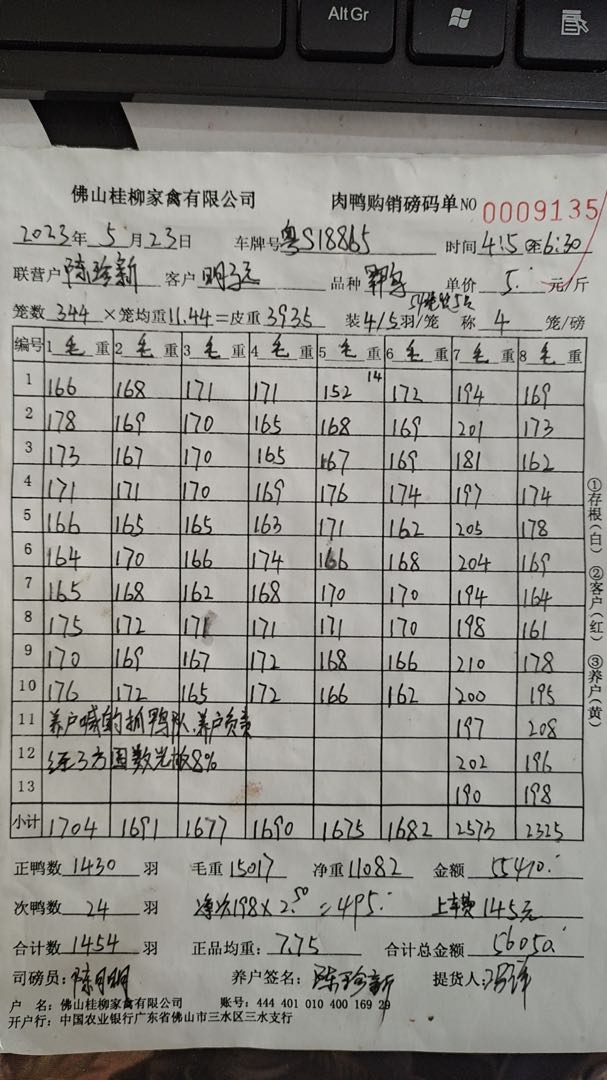 Alt Gr
佛山桂柳家禽有限公司 肉鸭购销磅码单 NO 0009135
2023年5月23日 车牌号 粤S18865 时间 4:15至6:30
联营户 陈珍新 客户 品种 单价 5. 元/斤
笼数 344 ×笼均重 11.44 =皮重 3935 装 4/5 羽/笼 称 4 笼/磅
编号 1毛重 2毛重 3毛重 4毛重 5毛重 6毛重 7毛重 8毛重
1 166 168 171 171 152 14 172 194 169
2 178 169 170 165 168 169 201 173
3 173 167 170 165 167 169 181 162
4 171 171 170 169 176 174 197 174
5 166 165 165 163 171 162 205 178
6 164 170 166 174 166 168 204 169
7 165 168 162 168 170 170 194 164
8 175 172 171 171 171 170 198 161
9 170 169 167 172 168 166 210 178
10 176 172 165 172 166 162 200 195
11 养户喊的抓鸭队.养户负责 197 208
12 经三方 数 8% 202 196
13 190 198
小计 1704 1691 1677 1690 1675 1682 2573 2325
正鸭数 1430 羽 毛重 15017 净重 11082 金额 55410.
次鸭数 24 羽 净次198×2.50=495. 上车费145元
合计数 1454 羽 正品均重: 7.75 合计总金额 56050.
司磅员: 陈月明 养户签名: 陈珍新 提货人:
户 名: 佛山桂柳家禽有限公司 账号: 444 401 010 400 169 29
开户行: 中国农业银行广东省佛山市三水区三水支行
①存根(白) ②客户(红) ③养户(黄)